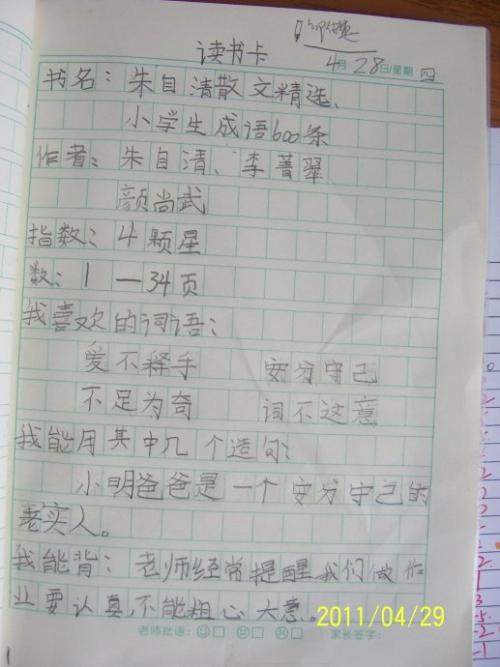 读书卡
4月28日/星期 四
书名：朱自清散文精选、
小学生成语600条
作者：朱自清、李菁翠
颜尚武
指数：4颗星
数：1—34页
我喜欢的词语：
爱不释手 安分守己
不足为奇 词不达意
我能用其中几个造句：
小明爸爸是一个安分守己的
老实人。
我能背：老师经常提醒我们做作
业要认真，不能粗心大意。
老师批语： 家长签字：
2011/04/29